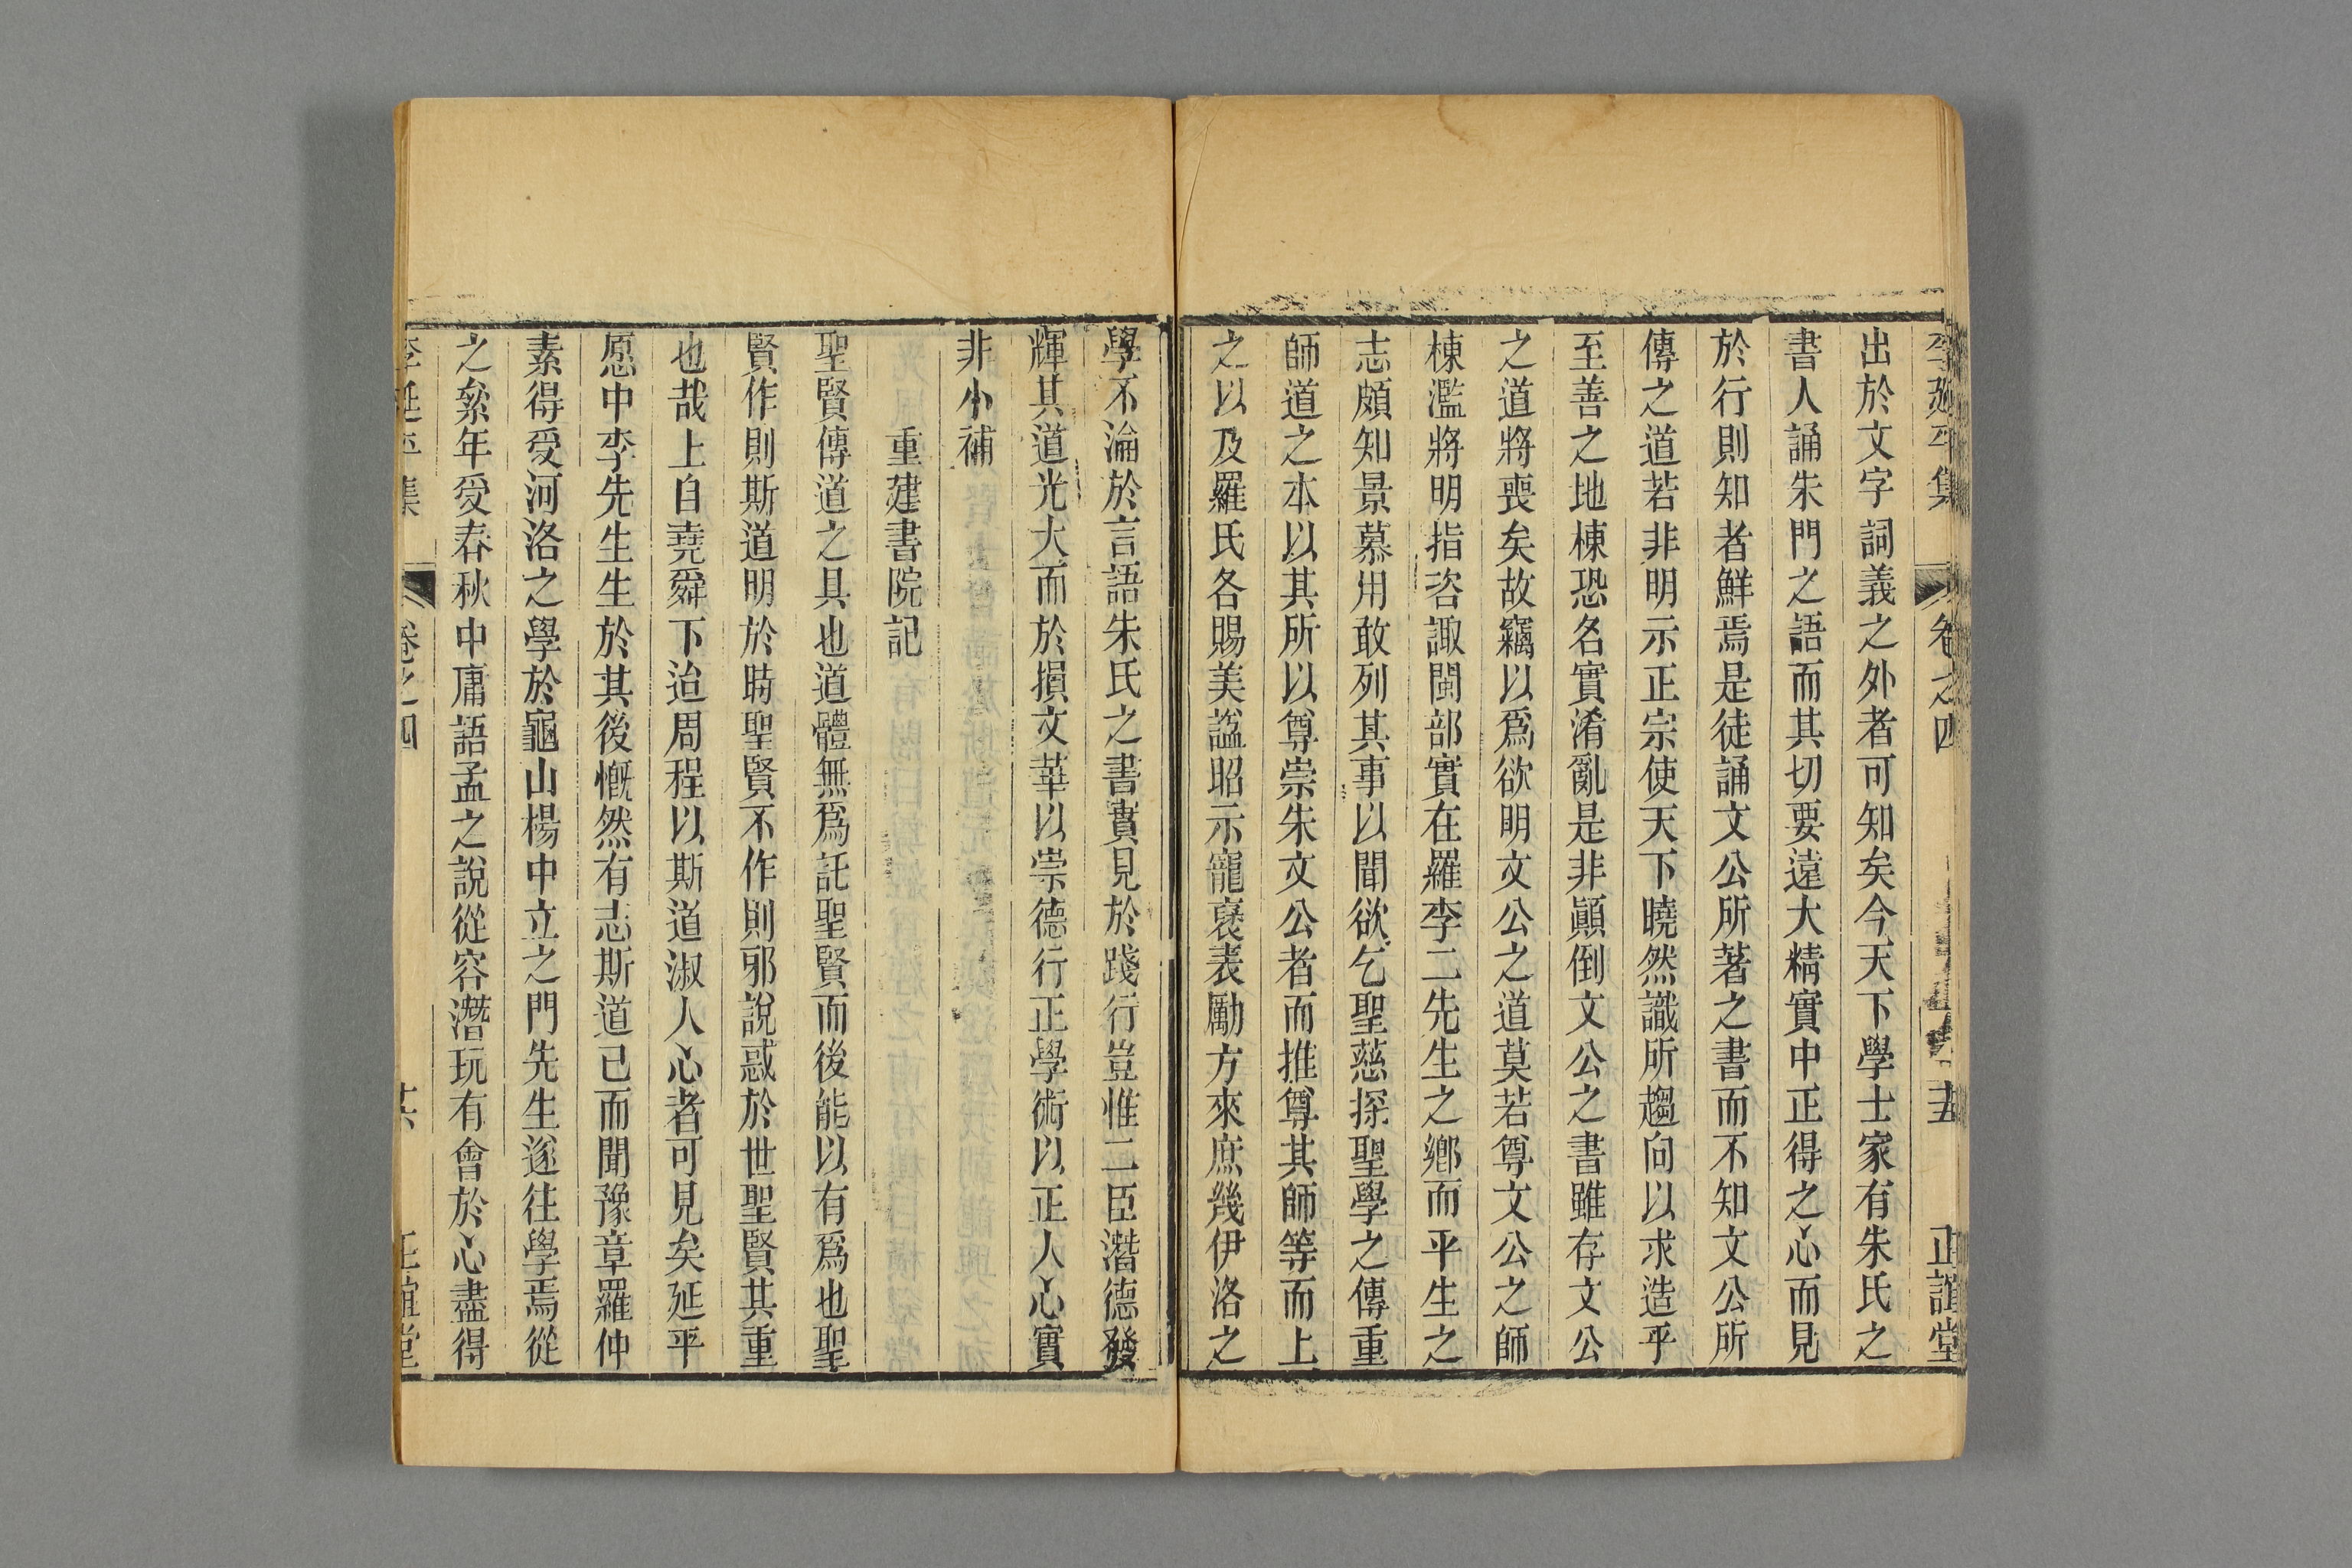 李延平集 卷之四 五 正誼堂
出於文字詞義之外者可知矣今天下學士家有朱氏之
書人誦朱門之語而其切要遠大精實中正得之心而見
於行則知者鮮焉是徒誦文公所著之書而不知文公所
傳之道若非明示正宗使天下曉然識所趨向以求造乎
至善之地棟恐名實淆亂是非顚倒文公之書雖存文公
之道將喪矣故竊以爲欲明文公之道莫若尊文公之師
棟濫將明指咨諏閩部實在羅李二先生之鄉而平生之
志頗知景慕用敢列其事以聞欲乞聖慈探聖學之傳重
師道之本以其所以尊崇朱文公者而推尊其師等而上
之以及羅氏各賜美諡昭示寵褒表勵方來庶幾伊洛之
學不淪於言語朱氏之書實見於踐行豈惟二臣潛德發
輝其道光大而於損文華以崇德行正學術以正人心實
非小補
重建書院記
聖賢傳道之具也道體無爲託聖賢而後能以有爲也聖
賢作則斯道明於時聖賢不作則邪說惑於世聖賢其重
也哉上自堯舜下迨周程以斯道淑人心者可見矣延平
愿中李先生生於其後慨然有志斯道已而聞豫章羅仲
素得受河洛之學於龜山楊中立之門先生遂往學焉從
之絫年受春秋中庸語孟之說從容潛玩有會於心盡得
李延平集 卷之四 十六 正誼堂